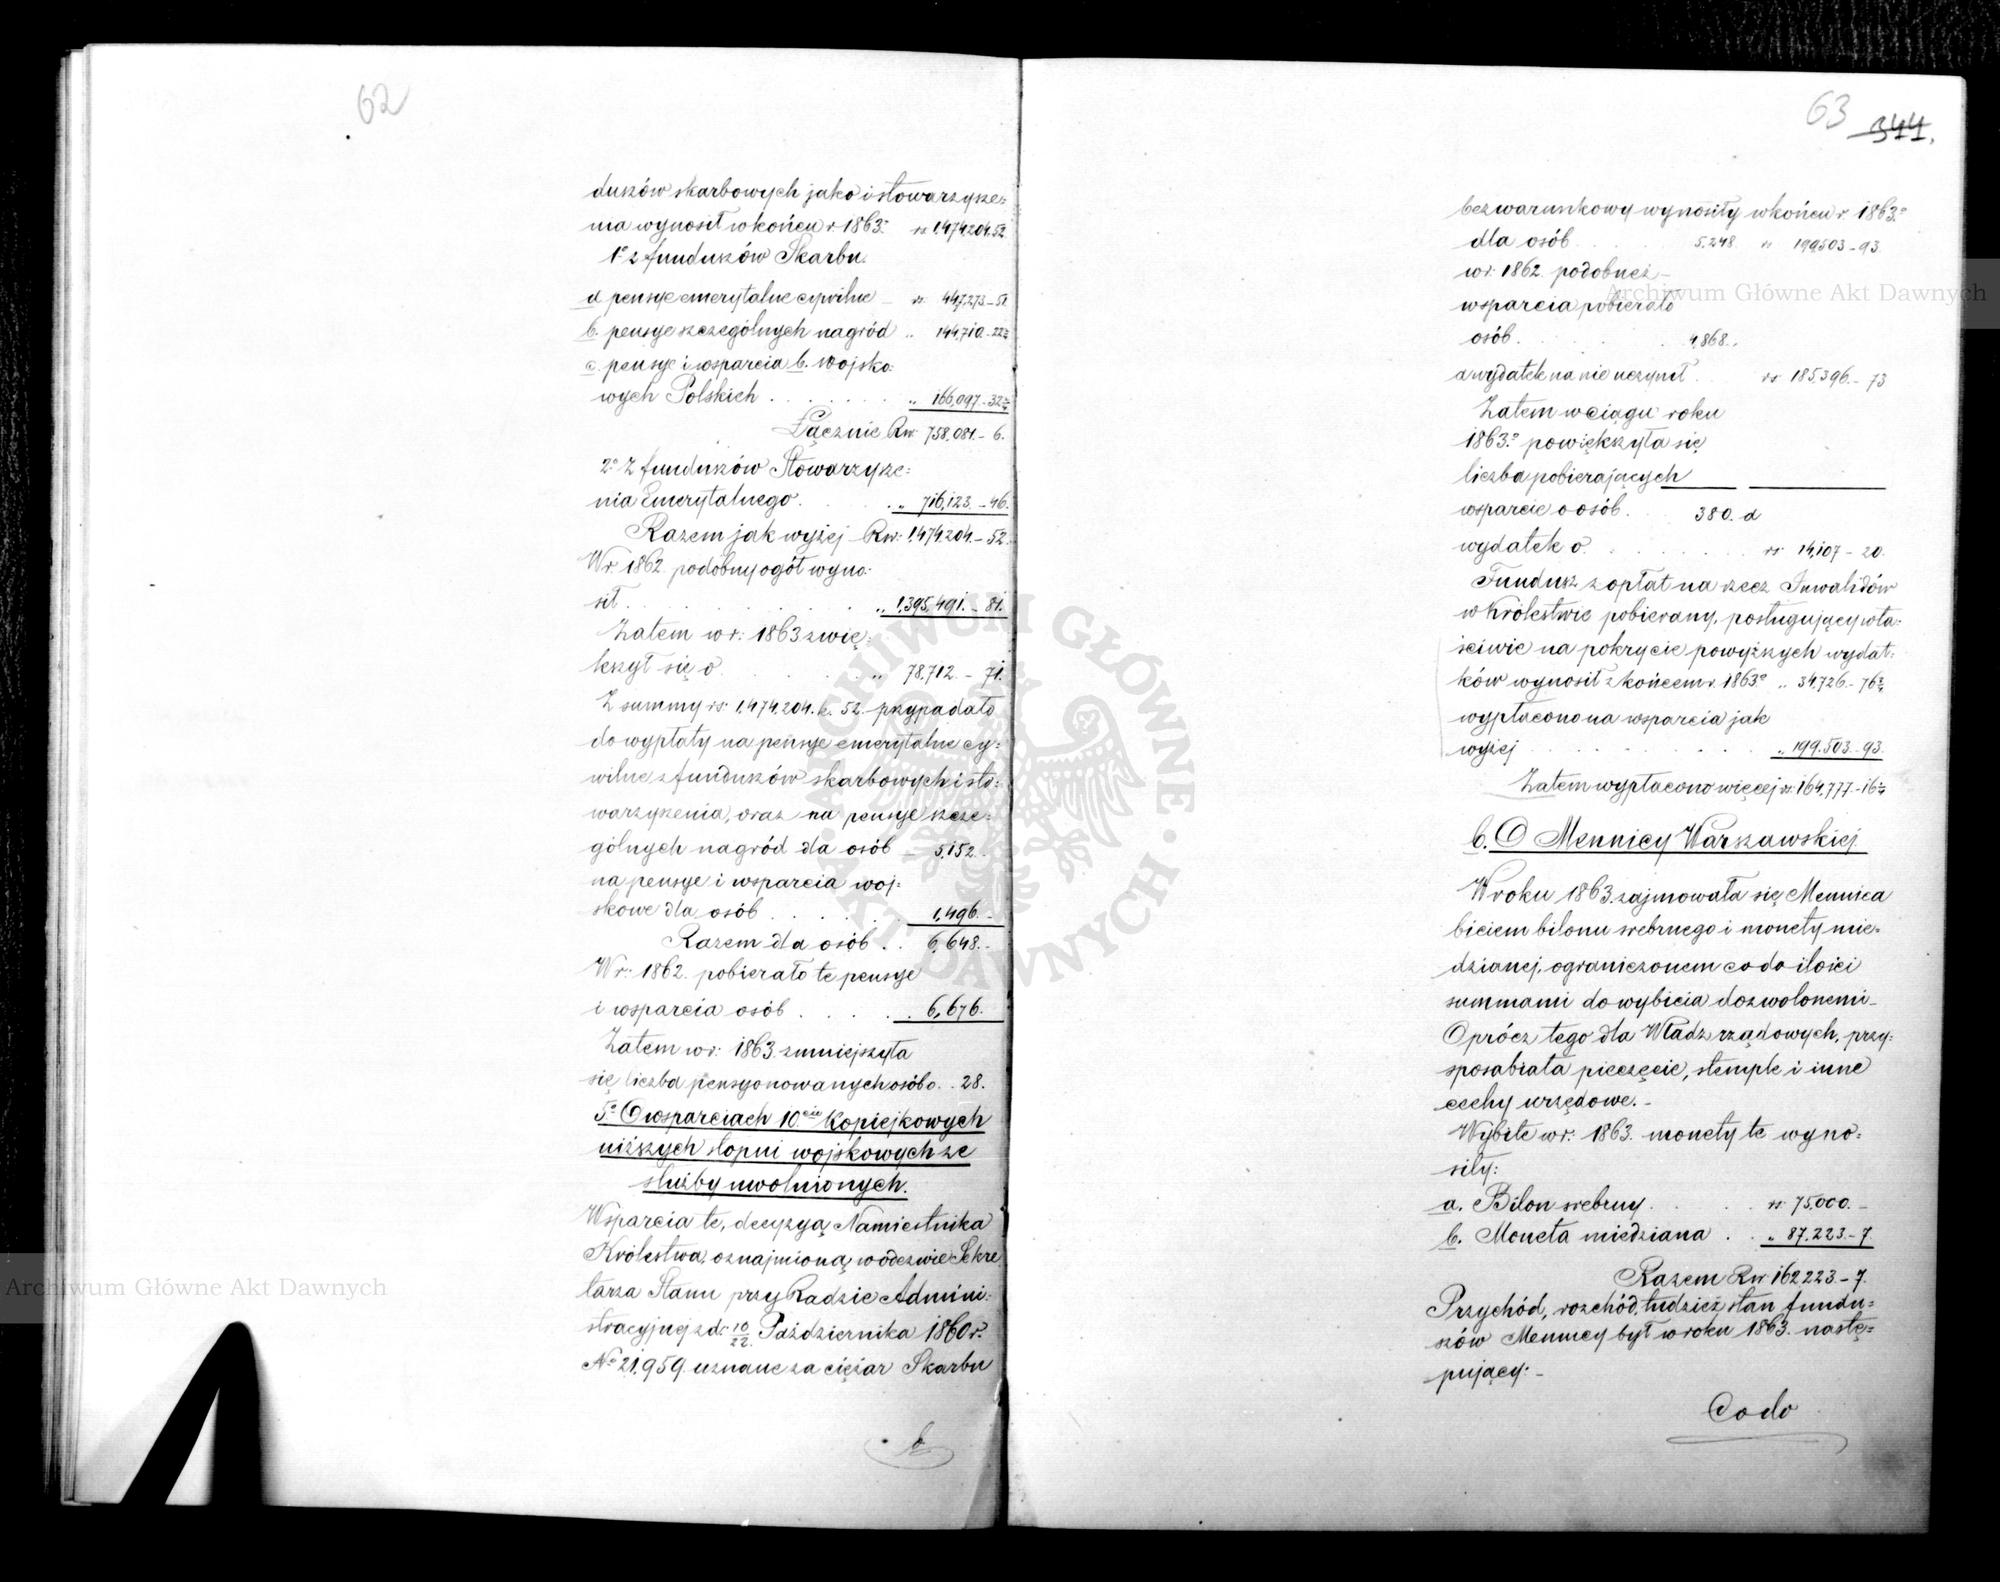 62
duszów skarbowych jako i stowarzysze=
nia wynosił w końcu r 1863. rs 1,474,204.52
1o z funduszów Skarbu.
a pensye emerytalne cywilne – rs: 447,273–51
b. pensye szczególnych nagród „ 144,710.–22½
c. pensye i wsparcia b. wojsko:
wych Polskich . . . . . . . „ 166,097–32½
Łącznie Rsr: 758,081.–6.
2o Z funduszów Stowarzysze=
nia Emerytalnego. . . . „ 716,123.–46.
Razem jak wyżej Rsr: 1,474,204.–52.
W r: 1862. podobny ogół wyno:
sił . . . . . . . . . „ 1,395,491.–81.
Zatem w r: 1863 zwię:
kszył się o . . . . . . . „ 78,712.–71.
Z summy rs: 1,474,204. k. 52. przypadało
do wypłaty na pensye emerytalne cy=
wilne z funduszów skarbowych i sto:
warzyszenia, oraz na pensye szcze:
gólnych nagród dla osób – 5,152.–
na pensye i wsparcia woj=
skowe dla osób . . . . . . 1,496.–
Razem dla osób . . 6,648.–
W r: 1862. pobierało te pensye
i wsparcia osób . . . . . 6,676.
Zatem w r: 1863. zmniejszyła
się liczba pensyonowanych osób o. . 28.
5o O wsparciach 10cio Kopiejkowych
niższych stopni wojskowych ze
służby uwolnionych.
Wsparcia te, decyzyą Namiestnika
Królestwa, oznajmioną w odezwie Sekre
tarza Stanu przy Radzie Admini:
stracyjnej z d: 10/22. Października 1860 r.
No 21,959. uznane za ciężar Skarbu
b
63 344.
bezwarunkowy wynosiły w końcu r. 1863o
dla osób . . . . 5,248. rs 199,503–93.
w r: 1862. podobneż –
wsparcia pobierało
osób. . . . . . . 4,868.„
a wydatek na nie uczynił . . rs 185,396.–73
Zatem w ciągu roku
1863.o powiększyła się
liczba pobierających
wsparcie o osób . . 380. a
wydatek o . . . . . . . . rs: 14,107–20.
Fundusz z opłat na rzecz Inwalidów
w Królestwie pobierany, posługujący wła:
ściwie na pokrycie powyższych wydat:
ków wynosił z końcem r. 1863o „ 34,726.–76¾
wypłacono na wsparcia jak
wyżej . . . . . . . . . „ 199,503–93.
Zatem wypłacono więcej rs: 164,777–16¼
b. O Mennicy Warszawskiej.
W roku 1863. zajmowała się Mennica
biciem bilonu srebrnego i monety mie=
dzianej, ograniczonem co do ilości
summami do wybicia dozwolonemi –
Oprócz tego dla Władz rządowych, przy:
sposabiała pieczęcie, stemple i inne
cechy urzędowe. –
Wybite w r: 1863. monety te wyno:
siły:
a. Bilon srebrny . . . . rs 75,000. –
b. Moneta miedziana . . „ 87,223.–7.
Razem Rsr 162223.–7.
Przychód, rozchód, tudzież stan fundu=
szów Mennicy był w roku 1863. nastę=
pujący: –
Co do
Archiwum Główne Akt Dawnych
Archiwum Główne Akt Dawnych
ARCHIWUM GŁÓWNE AKT DAWNYCH